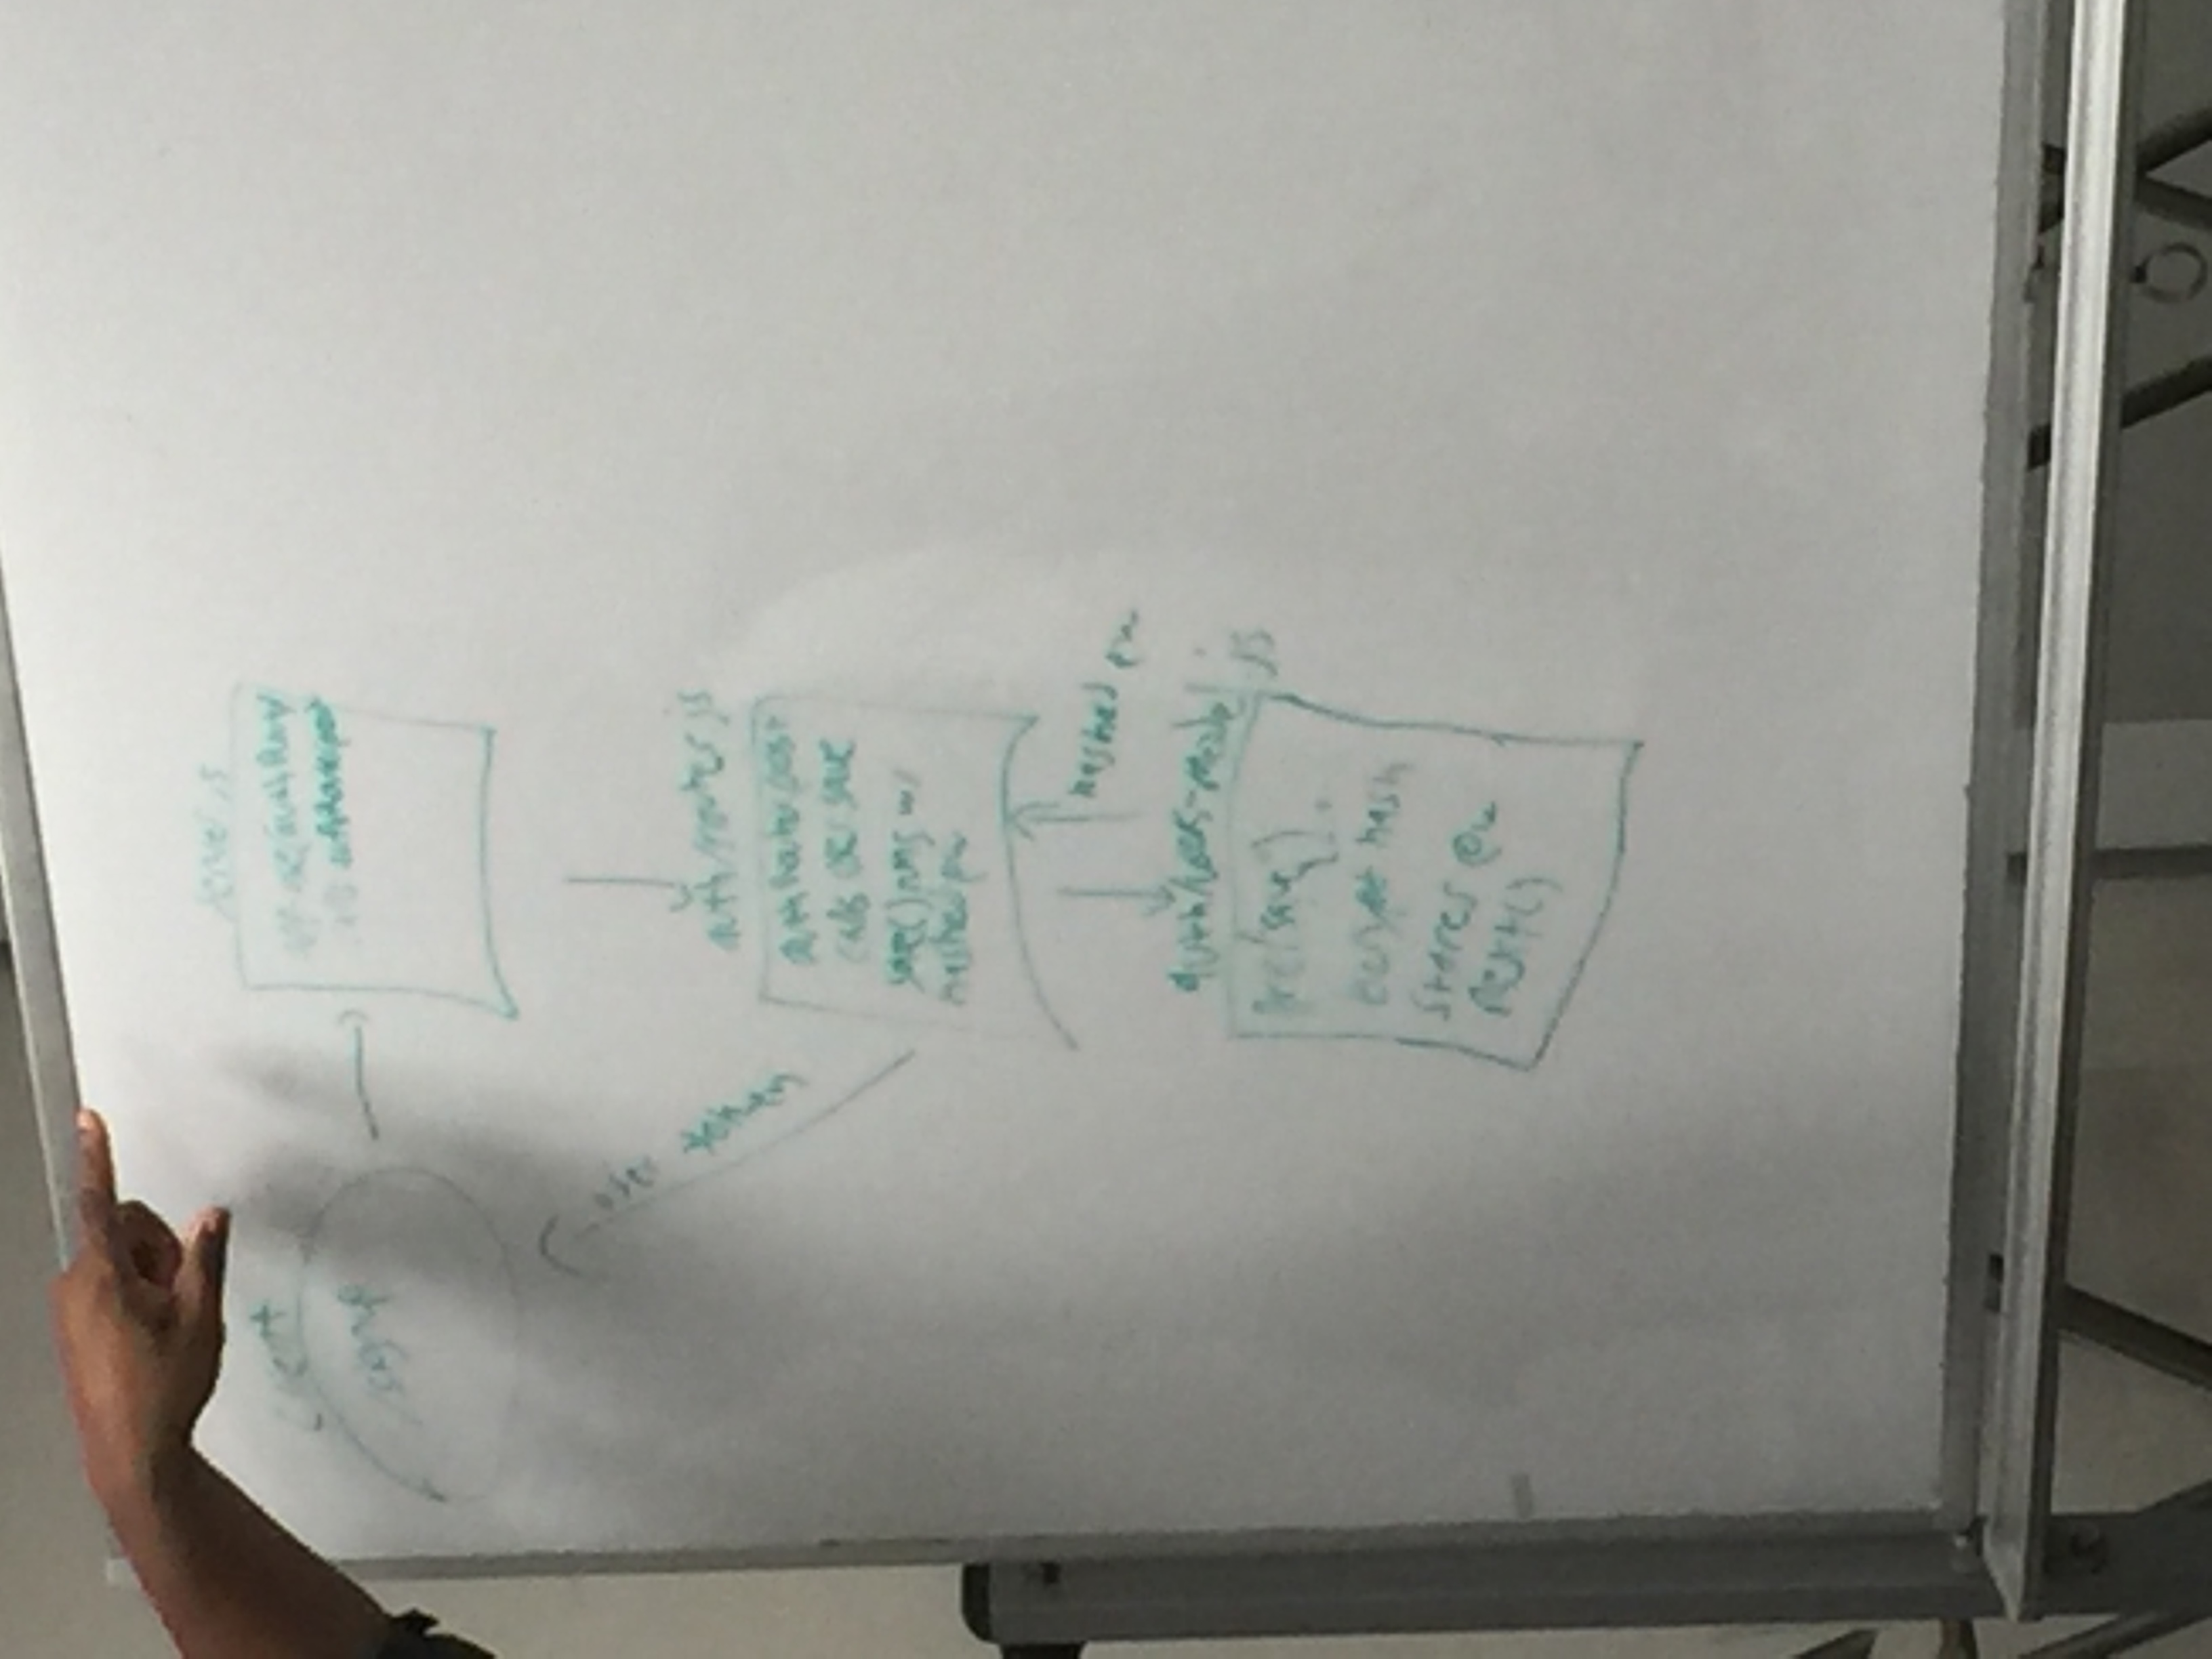 Client
/signup
server.js
authRouter.post
user token
auth/router.js
authRouter.post
calls user save
save() runs w/
hashed pw
hashed pw
auth/users-model.js
Pre('save')
bcrypt hash
stores pw
Next()